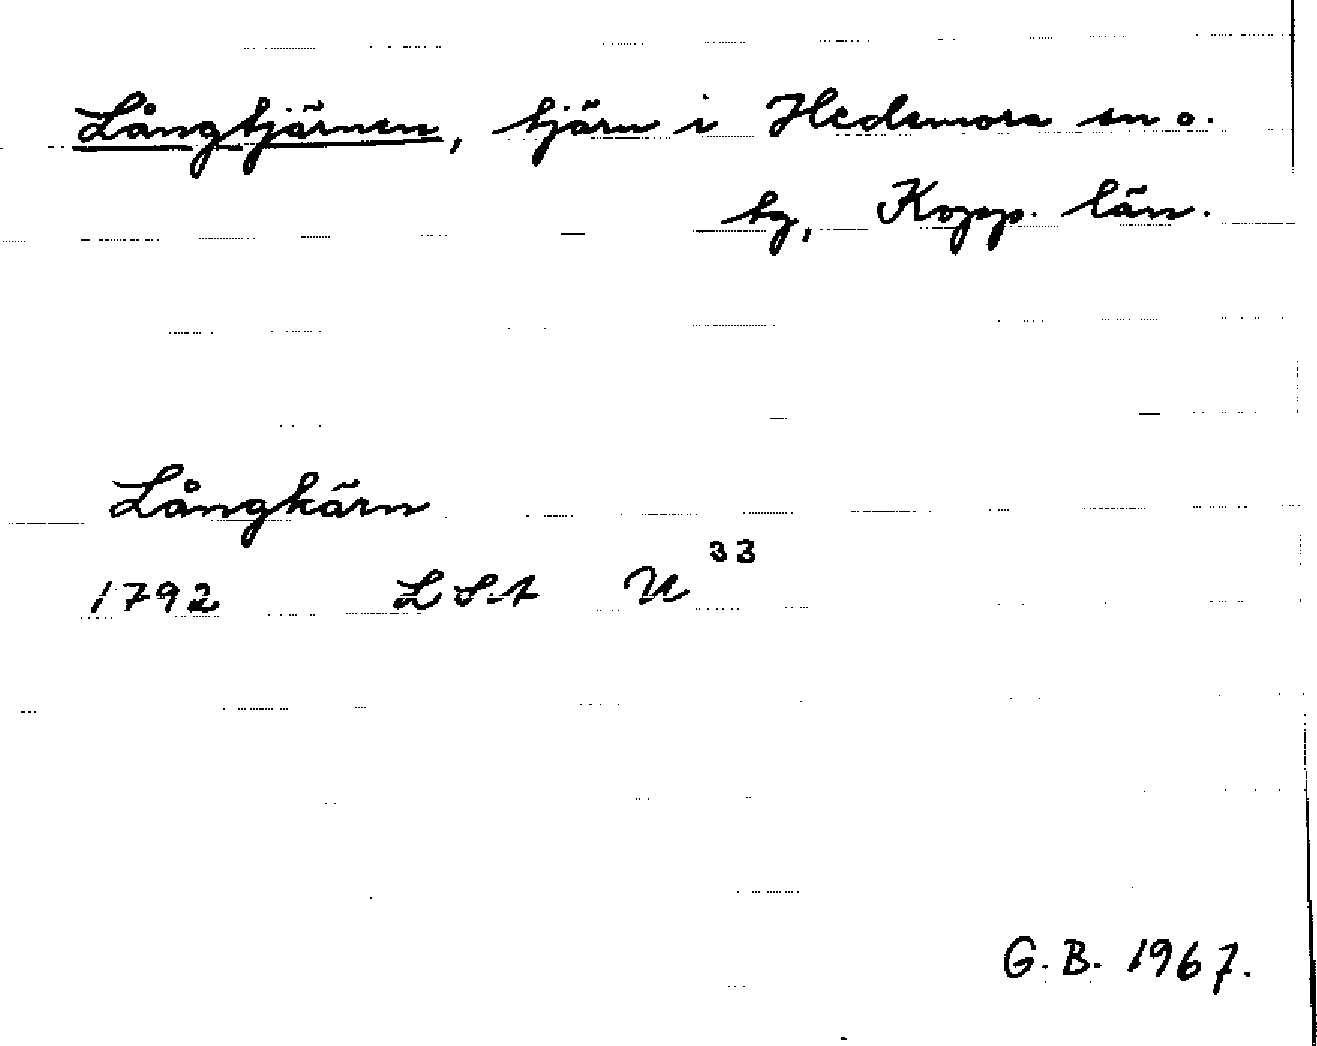 Långtjärnen, tjärn i Hedemora sn o.
tg, Kopp. län.
Långkärn
1792 LSA U 33
G. B. 1967.